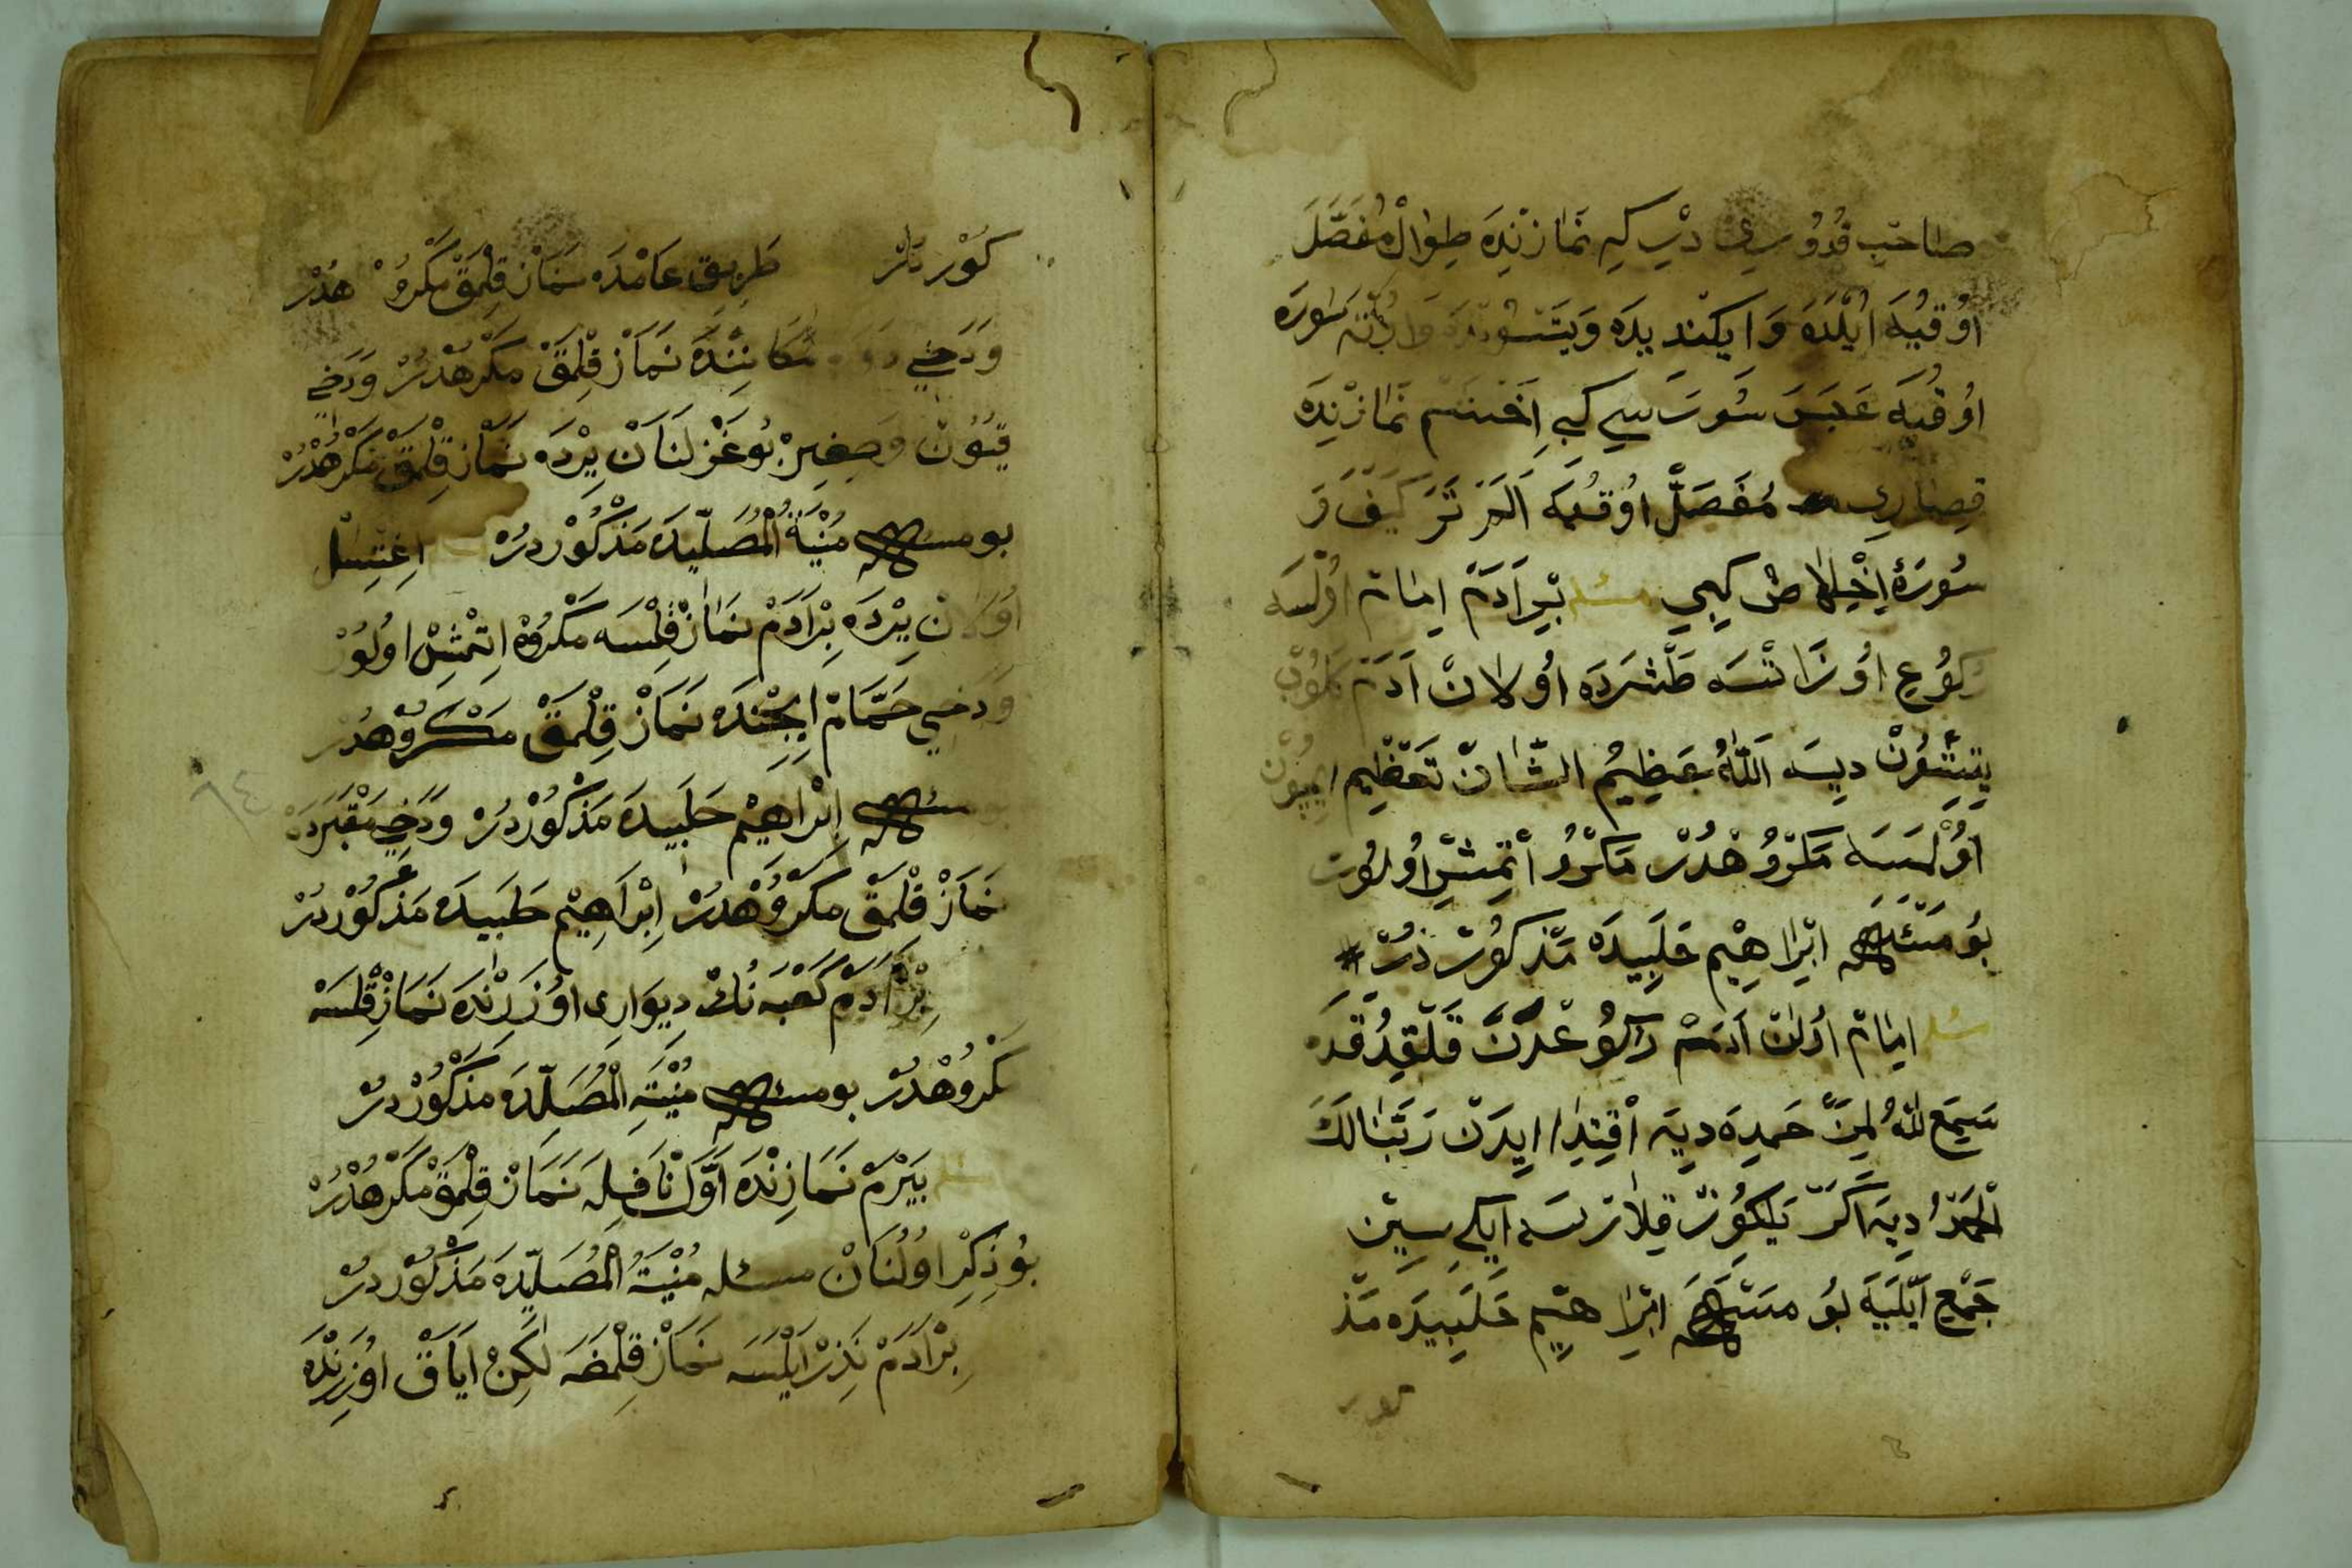 صاحب قدوسي ديركه نمازنده طوال مفصل
اوقيه ايلده وايكنديده ويتسونده سوره
اوقيه عبس سورسي كبي اخشم نمازنده
قصاري مفصل اوقمه الم تر كيف و
سورة إخلاص كبي مسئله بر آدم امام اولسه
ركوع اوزاتسه طشرده اولان آدم كلوب
يتشون ديسه الله عظيم الشان تعظيم ايچون
اولمسه مكروهدر مكروه اتمش اولور
بو مسئله ابراهيم حلبيده مذكور در
مسئله امام اولان آدم ركوعدن قلقدقده
سمع الله لمن حمده ديه اقتدا ايدن ربنا لك
الحمد ديه اكر يالكوز قلارسه ايكيسين
جمع ايليه بو مسئله ابراهيم حلبيده مذ
كور در
كوردر طريق عامده نماز قلمق مكروهدر
ودخي دوه مكاننده نماز قلمق مكرهدر ودخي
قيون وصغير بوغزلنان يرده نماز قلمق مكرهدر
بو مسئله منية المصليده مذكور در اغتسل
اولان يرده بر آدم نماز قلسه مكروه اتمش اولور
ودخي حمام ايچنده نماز قلمق مكروهدر
بو مسئله ابراهيم حلبيده مذكور در ودخي مقبرده
نماز قلمق مكروهدر ابراهيم حلبيده مذكور در
بر آدم كعبه نك ديواري اوزرنده نماز قلسه
مكروهدر بو مسئله منية المصلده مذكور در
مسئله بيرم نمازنده اول نافله نماز قلمق مكرهدر
بو ذكر اولنان مسئله منية المصليده مذكور در
بر آدم نذر ايلسه نماز قلمضه لكن اياق اوزرنده